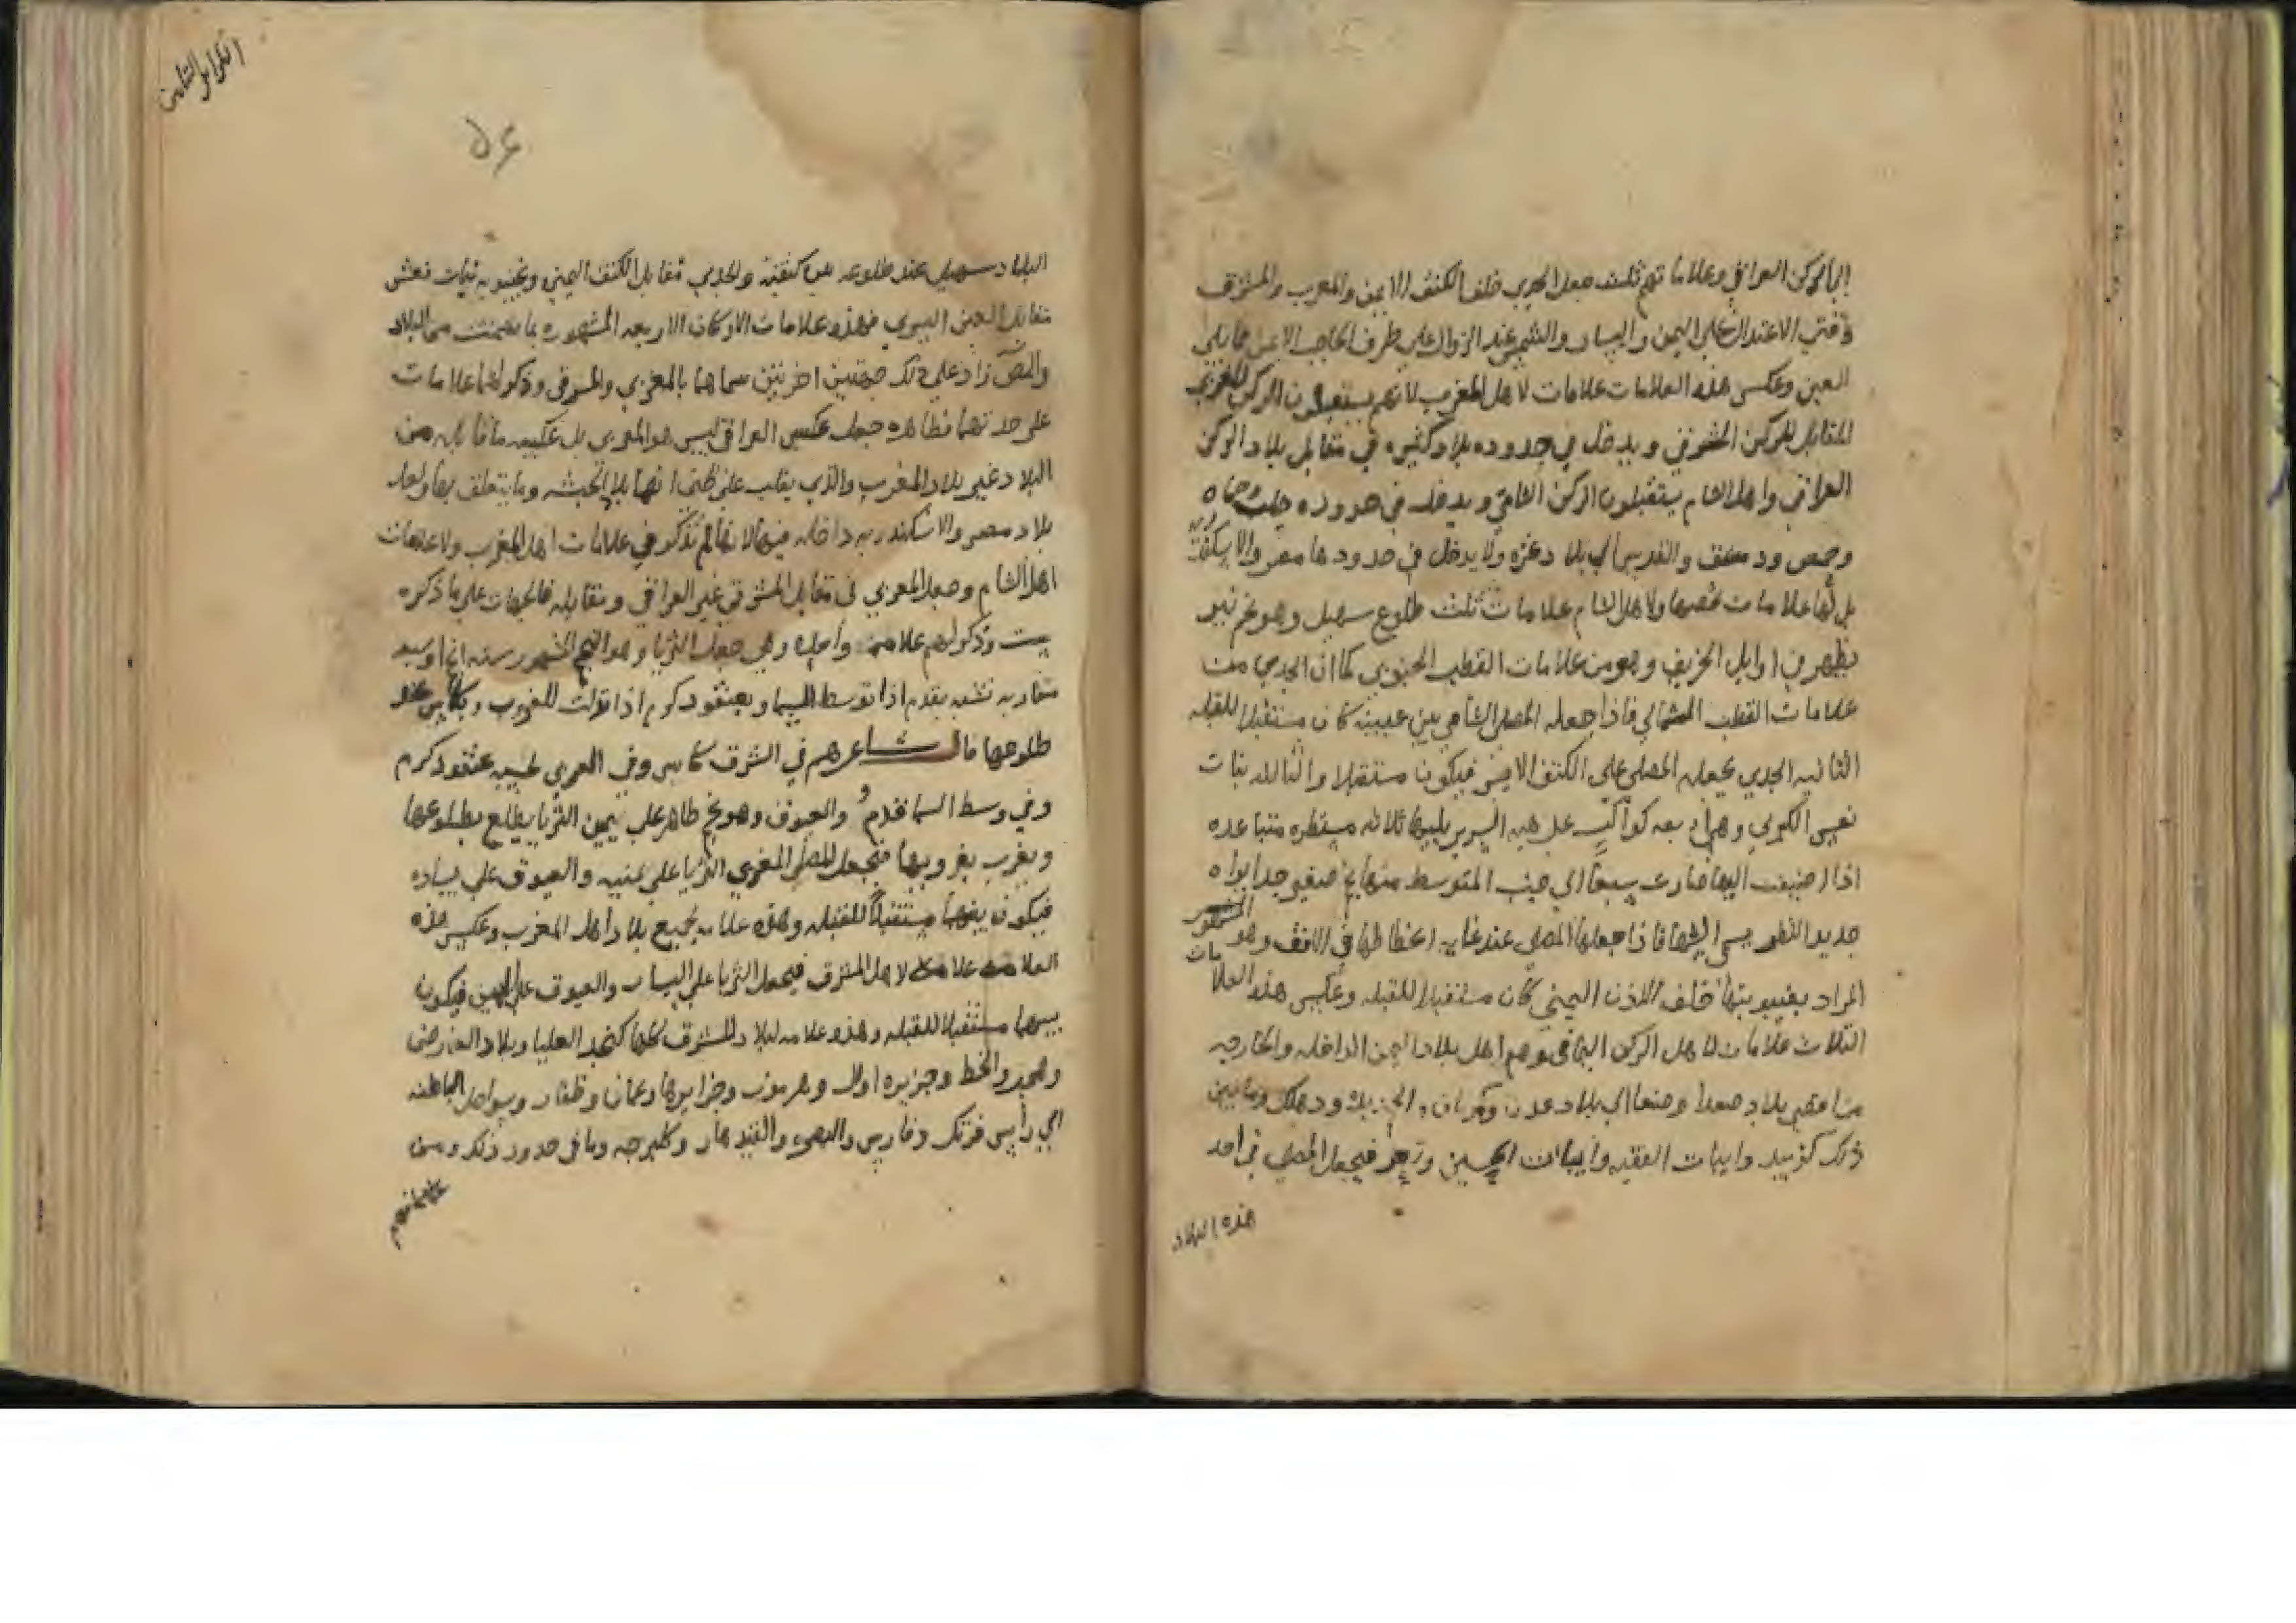 الي الركن العراقي وعلاماتهم ثلث جعل الجدي خلف الكتف الايمن والمغرب والمشرق
وقتي الاعتدال علي اليمين واليسار والشمس عند الزوال علي طرف الحاجب الايمن مما يلي
العين وعكس هذه العلامات علامات لاهل المغرب لانهم يستقبلون الركن الغربي
المقابل للركن المشرقي ويدخل في حدوده بلاد كثيره في مقابل بلاد الركن
العراقي واهل الشام يستقبلون الركن الشامي ويدخل في حدوده حلب وحماه
وحمص ودمشق والقدس الي بلاد غزه ولا يدخل في حدودها مصر والاسكندريه
بل لها علامات تخصها ولاهل الشام علامات ثلث طلوع سهيل وهو نجم نير
يظهر في اوايل الخريف وهو من علامات القطب الجنوبي كما ان الجدي من
علامات القطب الشمالي فاذا جعله المصلي الشامي بين عينيه كان مستقبلا للقبله
الثانيه الجدي يجعله المصلي علي الكتف الايسر فيكون مستقبلا والثالثه بنات
نعش الكبري وهي اربعه كواكب علي هيه السرير يليها ثلاثه مستطره متباعده
اذا اضيفت اليها صارت سبعا الي جنب المتوسط منها نجم صغير جدا يراه
حديد النظر يسمي السها فاذا جعلها المصلي عند غايه انحطاطها في الافق وهو
المراد بغيبوبتها خلف الاذن اليمني كان مستقبلا للقبله وعكس هذه العلامات
الثلاث علامات لاهل الركن اليماني وهم اهل بلاد اليمن الداخله والخارجه
من اقصي بلاد صعدا وصنعا الي بلاد عدن ودهلك وما بين
ذلك كزبيد وابيات الفقيه وابيات حسين وتعز فيجعل المصلي في احد
هذه البلاد
البلاد سهيل عند طلوعه بين كتفيه والجدي مقابل الكتف اليمني وبغيبوبه بنات نعش
مقابل العين اليسري فهذه علامات الاركان الاربعه المشهوره بما تضمنت من البلاد
والمص زاد علي ذلك جهتين اخريين سماهما بالمغربي والمشرقي وذكر لهما علامات
علي حدتهما فظاهره جعل عكس العراقي ليس هو المغربي بل عكسه ما قابله من
البلاد غير بلاد المغرب والذي يغلب علي ظني انها بلاد الحبشه وما يتعلق بها ولعل
بلاد مصر والاسكندريه داخله فيها لانها لم تذكر في علامات اهل المغرب ولا علامات
اهل الشام وجعل المغربي في مقابل المشرقي غير العراقي ومقابله فالجهات علي ما ذكره
ست وذكر لهم علامه واحده وهي جعل الثريا وهو النجم المشهور سته انجم
متقاربه تشبه بقدم اذا توسط السما وبعنقود كرم اذا نزلت للغروب وبكاس عند
طلوعها قال شاعرهم في الشرق كاس وفي المغرب تحسبه عنقود كرم
وفي وسط السما قدم والعيوق وهو نجم ظاهر علي يمين الثريا يطلع بطلوعها
ويغرب بغروبها فيجعل المصلي المغربي الثريا علي يمينه والعيوق علي يساره
فيكون بينهما مستقبلا للقبله وهذه علامه لجميع بلاد اهل المغرب وعكس هذه
العلامه علامه لاهل المشرق فيجعل الثريا علي اليسار والعيوق علي اليمين فيكون
بينهما مستقبلا للقبله وهذه علامه لبلاد المشرق كلها كنجد العليا وبلاد العارض
وهجر والخط وجزيره اوال وهرموز وجزايرها وعمان وظفار وسواحل الباطنه
الي راس فرتك وفارس والهند والقندهار وكلبرجه وما في حدود ذلك ومن
علاماتهم